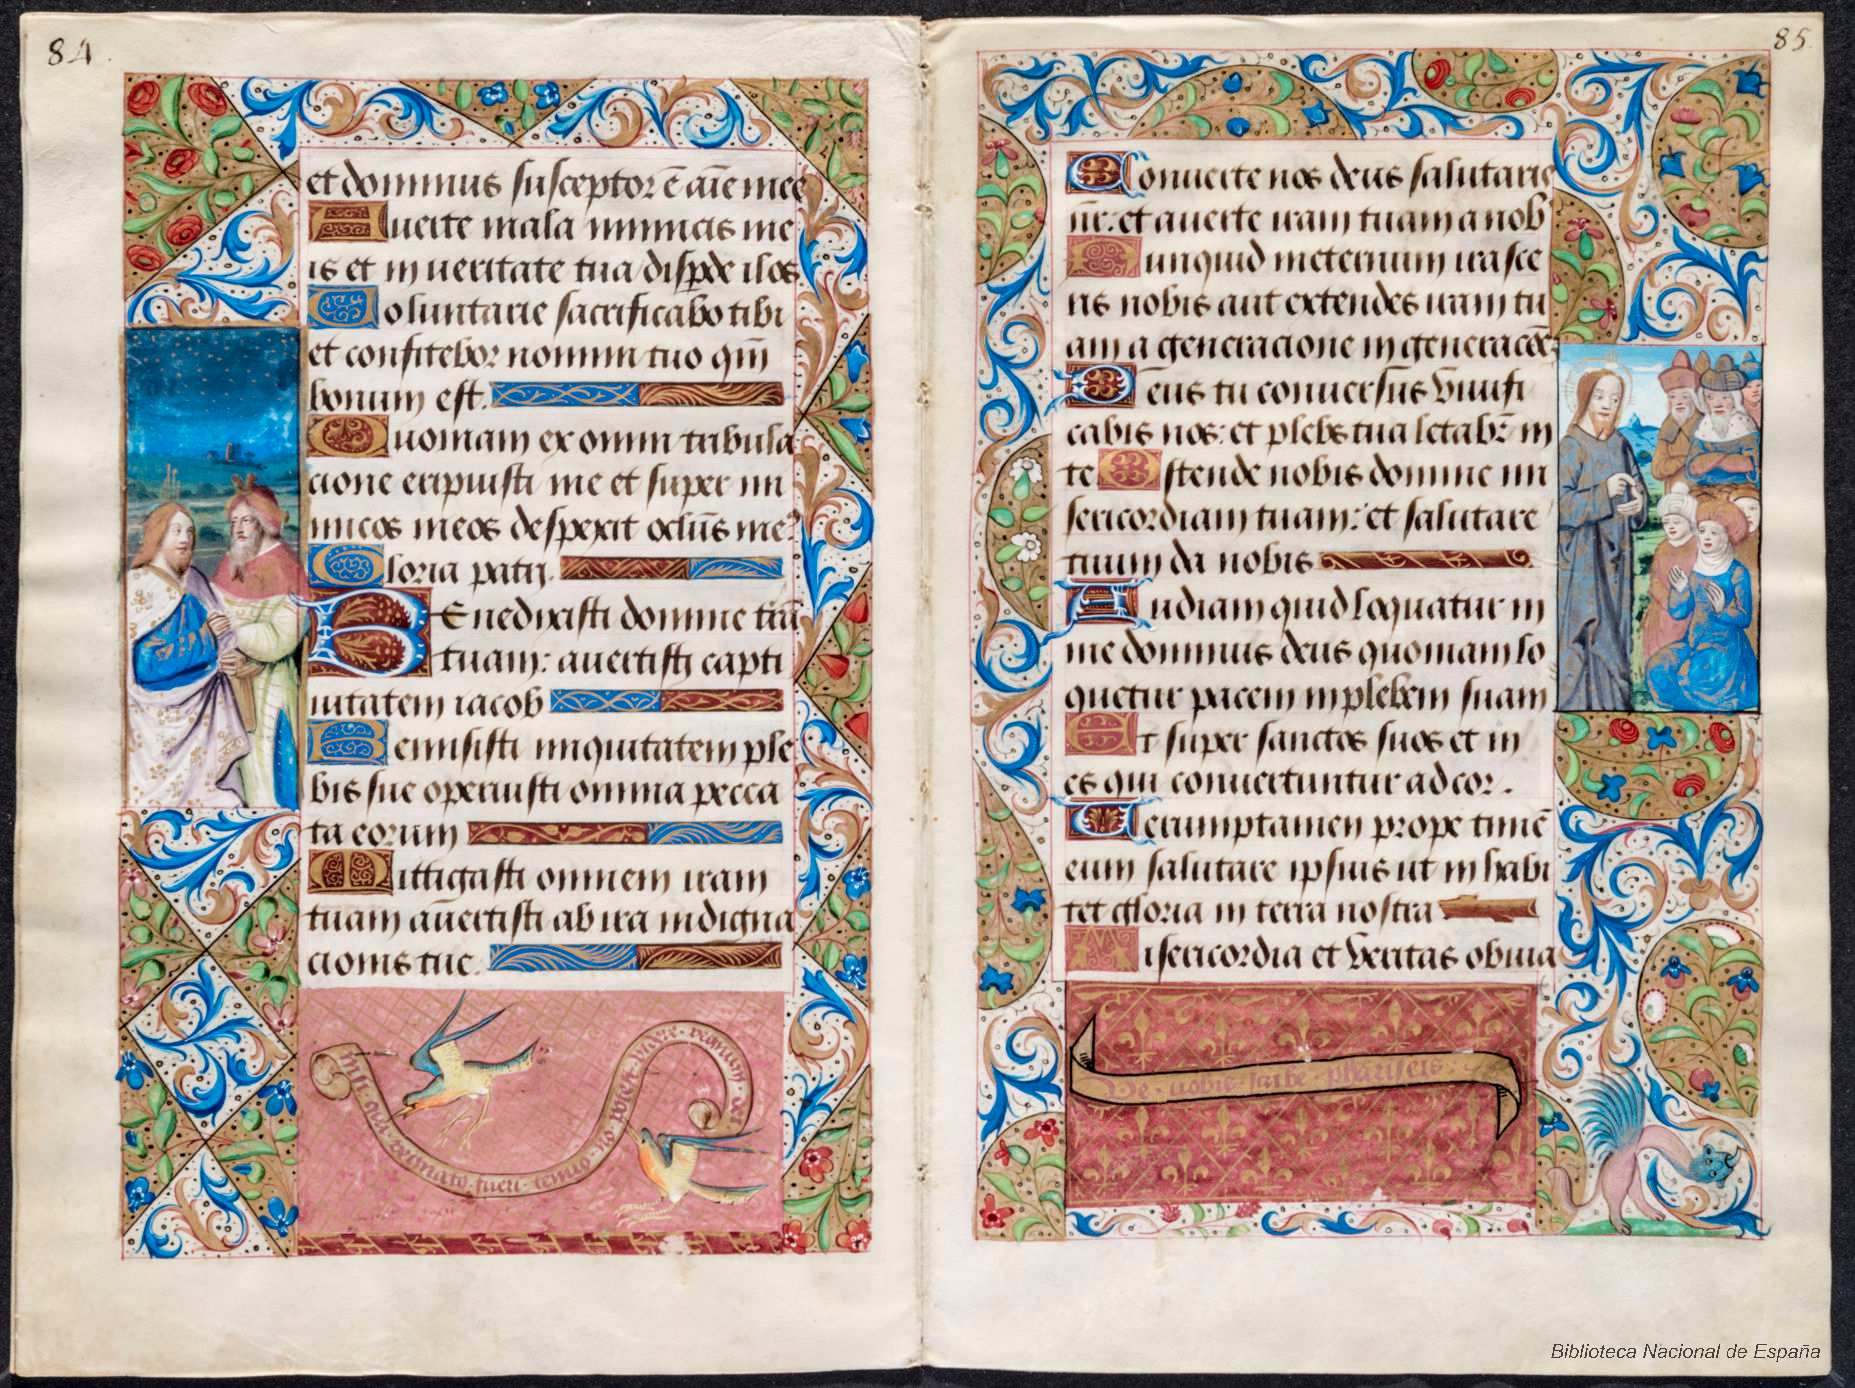 84
et dominus susceptor ē aīe mee
Auerte mala inimicis me
is et in ueritate tua disp̱de ilos
Uoluntarie sacrificabo tibi
et confitebor nomini tuo qm̄
bonum est.
Quoniam ex omni tribula
cione eripuisti me et super ini
micos meos despexit oclūs me
Gloria patrj.
BEnedixisti domine trā
tuam: auertisti capti
uitatem iacob
Remisisti iniquitatem ple
bis sue operuisti omnia pecca
ta eorum
Mittigasti omnem iram
tuam auertisti ab ira indigna
cionis tue.
nisi quis renatus fueri denuo nō potest videre regnum dei
85
Conuerte nos deus salutaris
nr̄: et auerte iram tuam a nob
Nunquid in eternum irasce
ris nobis aut extendes iram tu
am a generacione in generacōē
Deus tu conuersus viuifi
cabis nos: et plebs tua letabr̄ in
te Ostende nobis domine mi
sericordiam tuam: et salutare
tuum da nobis
Audiam quid loquatur in
me dominus deus quoniam lo
quetur pacem in plebem suam
Et super sanctos suos et in
es qui conuertuntur ad cor.
Uerumptamen prope timē
eum salutare ipsius ut in habi
tet gloria in terra nostra
Misericordia et veritas obuia
Ve vobis scribe phariseis
Biblioteca Nacional de España